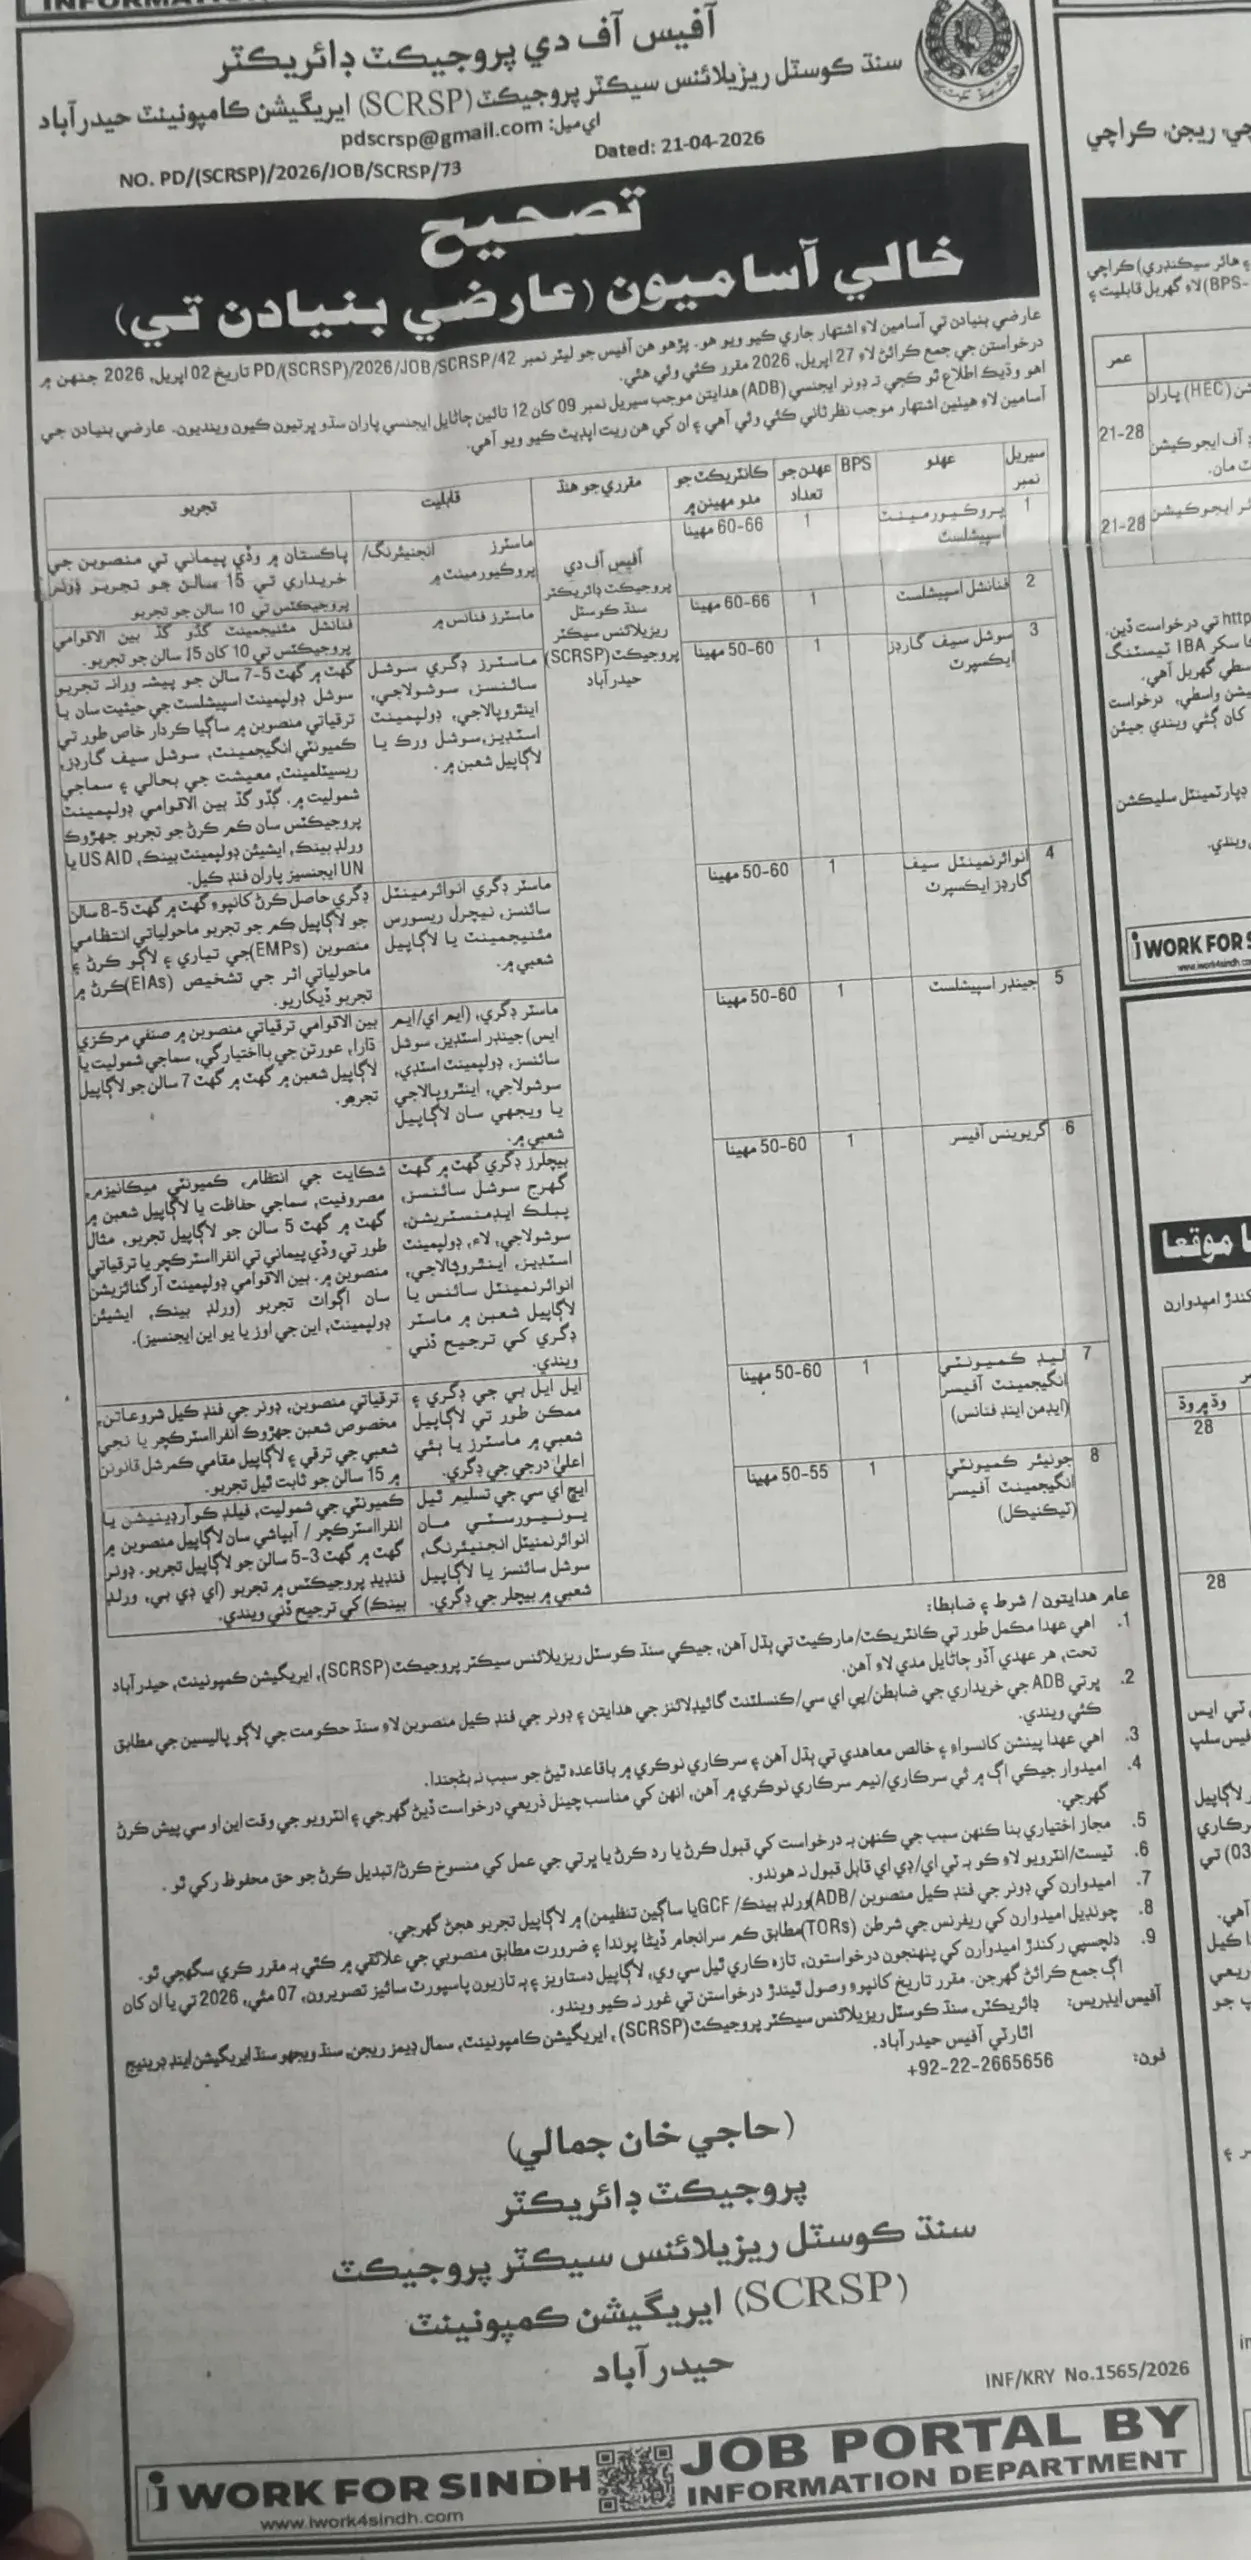 آفيس آف دي پروجيڪٽ ڊائريڪٽر
سنڌ ڪوسٽل ريزيلائنس سيڪٽر پروجيڪٽ (SCRSP) ايريگيشن ڪامپونينٽ حيدرآباد
اي ميل: pdscrsp@gmail.com
NO. PD/(SCRSP)/2026/JOB/SCRSP/73
Dated: 21-04-2026
تصحيح
خالي آساميون (عارضي بنيادن تي)
عارضي بنيادن تي آسامين لاءِ اشتهار جاري ڪيو ويو هو. پڙهو هن آفيس جو ليٽر نمبر PD/(SCRSP)/2026/JOB/SCRSP/42 تاريخ 02 اپريل، 2026 جنهن ۾
درخواستن جي جمع ڪرائڻ لاءِ 27 اپريل، 2026 مقرر ڪئي وئي هئي.
اهو وڌيڪ اطلاع ٿو ڪجي تہ ڊونر ايجنسي (ADB) هدايتن موجب سيريل نمبر 09 کان 12 تائين ڄاڻايل ايجنسي پاران سڌو ڀرتيون ڪيون وينديون. عارضي بنيادن جي
آسامين لاءِ هيٺين اشتهار موجب نظرثاني ڪئي وئي آهي ۽ ان کي هن ريت اپڊيٽ ڪيو ويو آهي.
سيريل نمبر | عهدو | BPS | عهدن جو تعداد | ڪانٽريڪٽ جو مدو مهينن ۾ | مقرري جو هنڌ | قابليت | تجربو
1 | پروڪيورمينٽ اسپيشلسٽ | 1 | 60-66 مهينا
آفيس آف دي
پروجيڪٽ ڊائريڪٽر
سنڌ ڪوسٽل
ريزيلائنس سيڪٽر
پروجيڪٽ (SCRSP)
حيدرآباد
ماسٽرز انجنيئرنگ/
پروڪيورمينٽ ۾
پاڪستان ۾ وڏي پيماني تي منصوبن جي
خريداري تي 15 سالن جو تجربو ڊونر
پروجيڪٽس تي 10 سالن جو تجربو
2 | فنانشل اسپيشلسٽ | 1 | 60-66 مهينا
ماسٽرز فنانس ۾
فنانشل مئنيجمينٽ گڏو گڏ بين الاقوامي
پروجيڪٽس تي 10 کان 15 سالن جو تجربو.
3 | سوشل سيف گارڊز ايڪسپرٽ | 1 | 50-60 مهينا
ماسٽرز ڊگري سوشل
سائنسز، سوشولاجي،
اينٿروپالاجي، ڊولپمينٽ
اسٽڊيز، سوشل ورڪ يا
لاڳاپيل شعبن ۾.
گهٽ ۾ گهٽ 5-7 سالن جو پيشہ ورانہ تجربو
سوشل ڊولپمينٽ اسپيشلسٽ جي حيثيت سان يا
ترقياتي منصوبن ۾ ساڳيا ڪردار خاص طور تي
ڪميونٽي انگيجمينٽ، سوشل سيف گارڊز،
ريسيٽلمينٽ، معيشت جي بحالي ۽ سماجي
شموليت ۾. گڏو گڏ بين الاقوامي ڊولپمينٽ
پروجيڪٽس سان ڪم ڪرڻ جو تجربو جهڙوڪ
ورلڊ بينڪ، ايشيئن ڊولپمينٽ بينڪ، US AID يا
UN ايجنسيز پاران فنڊ ڪيل.
4 | انوائرنمينٽل سيف گارڊز ايڪسپرٽ | 1 | 50-60 مهينا
ماسٽر ڊگري انوائرمينٽل
سائنسز، نيچرل ريسورس
مئنيجمينٽ يا لاڳاپيل
شعبي ۾.
ڊگري حاصل ڪرڻ کانپوءِ گهٽ ۾ گهٽ 5-8 سالن
جو لاڳاپيل ڪم جو تجربو ماحولياتي انتظامي
منصوبن (EMPs) جي تياري ۽ لاڳو ڪرڻ ۽
ماحولياتي اثر جي تشخيص (EIAs) ڪرڻ ۾
تجربو ڏيکاريو.
5 | جينڊر اسپيشلسٽ | 1 | 50-60 مهينا
ماسٽر ڊگري، (ايم اي/ايم
ايس) جينڊر اسٽڊيز، سوشل
سائنسز، ڊولپمينٽ اسٽڊي،
سوشولاجي، اينٿروپالاجي
يا ويجهي سان لاڳاپيل
شعبي ۾.
بين الاقوامي ترقياتي منصوبن ۾ صنفي مرڪزي
ڌارا، عورتن جي بااختياري، سماجي شموليت يا
لاڳاپيل شعبن ۾ گهٽ ۾ گهٽ 7 سالن جو لاڳاپيل
تجربو.
6 | گريوينس آفيسر | 1 | 50-60 مهينا
بيچلرز ڊگري گهٽ ۾ گهٽ
گهرج سوشل سائنسز،
پبلڪ ايڊمنسٽريشن،
سوشولاجي، لاء، ڊولپمينٽ
اسٽڊيز، اينٿروپالاجي،
انوائرنمينٽل سائنس يا
لاڳاپيل شعبن ۾ ماسٽر
ڊگري کي ترجيح ڏني
ويندي.
شڪايت جي انتظام، ڪميونٽي ميڪانيزم،
مصروفيت، سماجي حفاظت يا لاڳاپيل شعبن ۾
گهٽ ۾ گهٽ 5 سالن جو لاڳاپيل تجربو، مثال
طور تي وڏي پيماني تي انفرااسٽرڪچر يا ترقياتي
منصوبن ۾. بين الاقوامي ڊولپمينٽ آرگنائزيشن
سان اڳوڻ تجربو (ورلڊ بينڪ، ايشيئن
ڊولپمينٽ، اين جي اوز يا يو اين ايجنسيز).
7 | ليڊ ڪميونٽي انگيجمينٽ آفيسر (ايڊمن اينڊ فنانس) | 1 | 50-60 مهينا
ايل ايل بي جي ڊگري ۽
ممڪن طور تي لاڳاپيل
شعبي ۾ ماسٽرز يا ٻئي
اعليٰ درجي جي ڊگري.
ترقياتي منصوبن، ڊونر جي فنڊ ڪيل شروعاتن،
مخصوص شعبن جهڙوڪ انفرااسٽرڪچر يا نجي
شعبي جي ترقي ۽ لاڳاپيل مقامي ڪمرشل قانونن
۾ 15 سالن جو ثابت ٿيل تجربو.
8 | جونيئر ڪميونٽي انگيجمينٽ آفيسر (ٽيڪنيڪل) | 1 | 50-55 مهينا
ايڇ اي سي جي تسليم ٿيل
يونيورسٽي مان
انوائرنمينٽل انجنيئرنگ،
سوشل سائنسز يا لاڳاپيل
شعبي ۾ بيچلر جي ڊگري.
ڪميونٽي جي شموليت، فيلڊ ڪوآرڊينيشن يا
انفرااسٽرڪچر / آبپاشي سان لاڳاپيل منصوبن ۾
گهٽ ۾ گهٽ 3-5 سالن جو لاڳاپيل تجربو. ڊونر
فنڊيڊ پروجيڪٽس ۾ تجربو (اي ڊي بي، ورلڊ
بينڪ) کي ترجيح ڏني ويندي.
عام هدايتون / شرط ۽ ضابطا:
1. اهي عهدا مڪمل طور تي ڪانٽريڪٽ/مارڪيٽ تي ٻڌل آهن، جيڪي سنڌ ڪوسٽل ريزيلائنس سيڪٽر پروجيڪٽ (SCRSP)، ايريگيشن ڪمپونينٽ، حيدرآباد
تحت، هر عهدي آڏو ڄاڻايل مدي لاءِ آهن.
2. ڀرتي ADB جي خريداري جي ضابطن/پي اي سي/ڪنسلٽنٽ گائيڊلائنز جي هدايتن ۽ ڊونر جي فنڊ ڪيل منصوبن لاءِ سنڌ حڪومت جي لاڳو پاليسين جي مطابق
ڪئي ويندي.
3. اهي عهدا پينشن کانسواءِ ۽ خالص معاهدي تي ٻڌل آهن ۽ سرڪاري نوڪري ۾ باقاعده ٿيڻ جو سبب نہ بڻجندا.
4. اميدوار جيڪي اڳ ۾ ئي سرڪاري/نيم سرڪاري نوڪري ۾ آهن، انهن کي مناسب چينل ذريعي درخواست ڏيڻ گهرجي ۽ انٽرويو جي وقت اين او سي پيش ڪرڻ
گهرجي.
5. مجاز اختياري بنا ڪنهن سبب جي ڪنهن بہ درخواست کي قبول ڪرڻ يا رد ڪرڻ يا ڀرتي جي عمل کي منسوخ ڪرڻ/تبديل ڪرڻ جو حق محفوظ رکي ٿو.
6. ٽيسٽ/انٽرويو لاءِ ڪو بہ ٽي اي/ڊي اي قابل قبول نہ هوندو.
7. اميدوارن کي ڊونر جي فنڊ ڪيل منصوبن (ADB/ورلڊ بينڪ/ GCF يا ساڳين تنظيمن) ۾ لاڳاپيل تجربو هجڻ گهرجي.
8. چونڊيل اميدوارن کي ريفرنس جي شرطن (TORs) مطابق ڪم سرانجام ڏيڻا پوندا ۽ ضرورت مطابق منصوبي جي علائقي ۾ ڪٿي بہ مقرر ڪري سگهجي ٿو.
9. دلچسپي رکندڙ اميدوارن کي پنهنجون درخواستون، تازه ڪاري ٿيل سي وي، لاڳاپيل دستاويز ۽ ٻہ تازيون پاسپورٽ سائيز تصويرون، 07 مئي، 2026 تي يا ان کان
اڳ جمع ڪرائڻ گهرجن. مقرر تاريخ کانپوءِ وصول ٿيندڙ درخواستن تي غور نہ ڪيو ويندو.
آفيس ايڊريس: ڊائريڪٽر، سنڌ ڪوسٽل ريزيلائنس سيڪٽر پروجيڪٽ (SCRSP)، ايريگيشن ڪامپونينٽ، سمال ڊيمز ريجن، سنڌ ويجهو سنڌ ايريگيشن اينڊ ڊرينيج
اٿارٽي آفيس حيدرآباد.
فون: +92-22-2665656
(حاجي خان جمالي)
پروجيڪٽ ڊائريڪٽر
سنڌ ڪوسٽل ريزيلائنس سيڪٽر پروجيڪٽ
(SCRSP) ايريگيشن ڪمپونينٽ
حيدرآباد
INF/KRY No.1565/2026
i WORK FOR SINDH
www.iwork4sindh.com
JOB PORTAL BY
INFORMATION DEPARTMENT
چي، ريجن، ڪراچي
عمر
21-28
21-28
i WORK FOR S
www.iwork4sindh.co
ا موقعا
ڪندڙ اميدوارن
وڌ ۾ وڌ
28
28